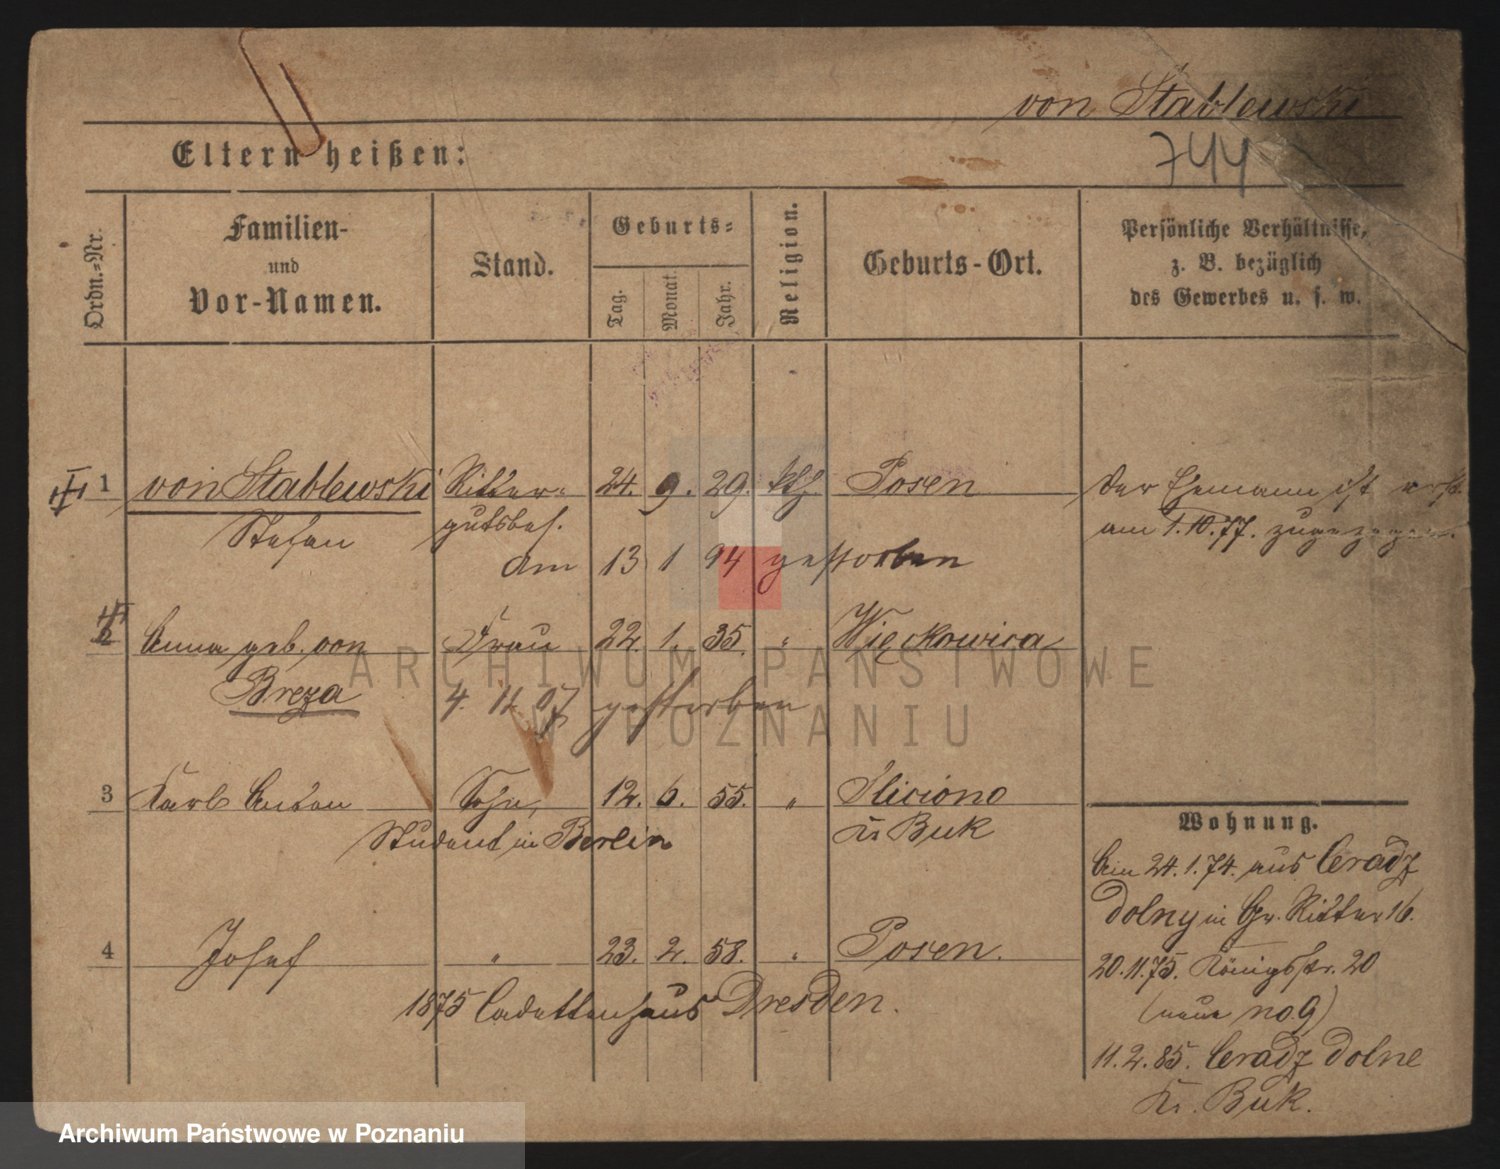 von Stablewski
Eltern heißen:
744
Ordn.-Nr.
Familien-
und
Vor-Namen.
Stand.
Geburts-
Tag.
Monat.
Jahr.
Religion.
Geburts-Ort.
Persönliche Verhältnisse,
z. B. bezüglich
des Gewerbes u. s. w.
1 von Stablewski Ritter- 24. 9. 29. kth. Posen der Ehemann ist erst
Stefan gutsbes. am 1.10.77. zugezogen.
am 13 1 94 gestorben
2 Anna geb. von Frau 22. 1. 35. " Więckowica
Breza 4. 11. 07 gestorben
3 Karl Anton Sohn, 12. 6. 55. "
Student in Berlin Kr Buk
Wohnung.
Am 24.1.74. aus Ceradz
dolny in Gr. Ritter 16.
4 Josef " 23. 2. 58. " Posen.
20.11.75. Königsstr. 20
1875 Cadettenhaus Dresden.
(neue no 9)
11.2.85. Ceradz dolne
Kr. Buk.
ARCHIWUM PAŃSTWOWE
W POZNANIU
Archiwum Państwowe w Poznaniu